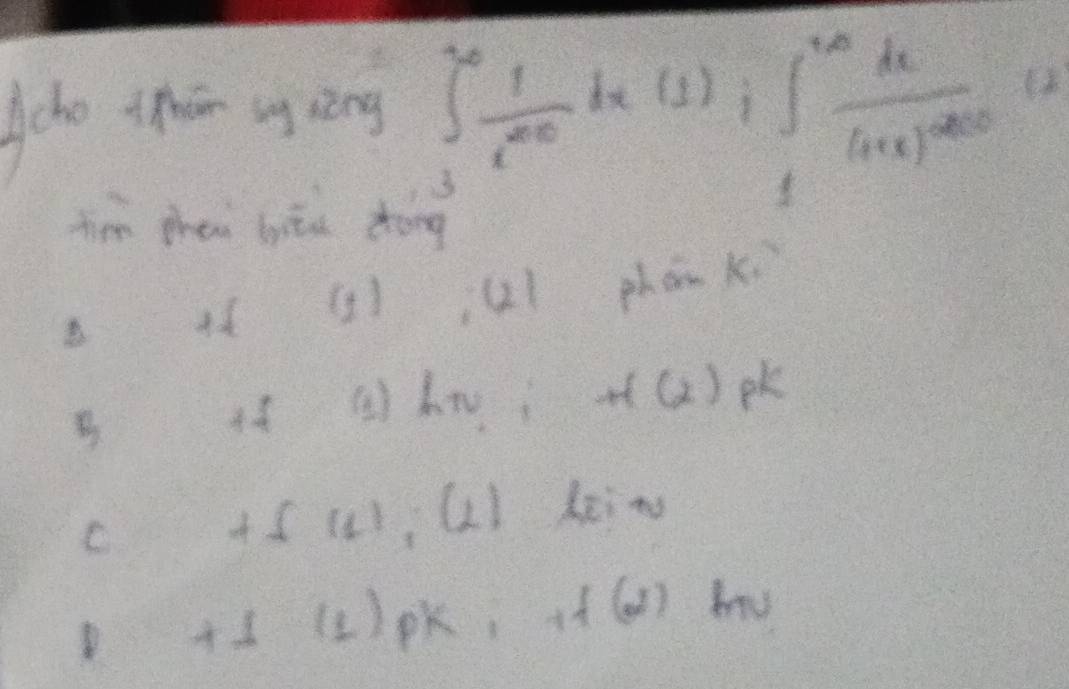 cho t phân suy rộng ∫₃^{+∞} 1/x^{2000} dx (1) ; ∫₁^{+∞} dx/(1+x)^{2000} (2
tìm phát biểu đúng
A tf (1) , (2) phân kì
B tf (1) htụ ; tf (2) pk
C tf (1) , (2) hội tụ
D tf (1) pk , tf (2) htụ